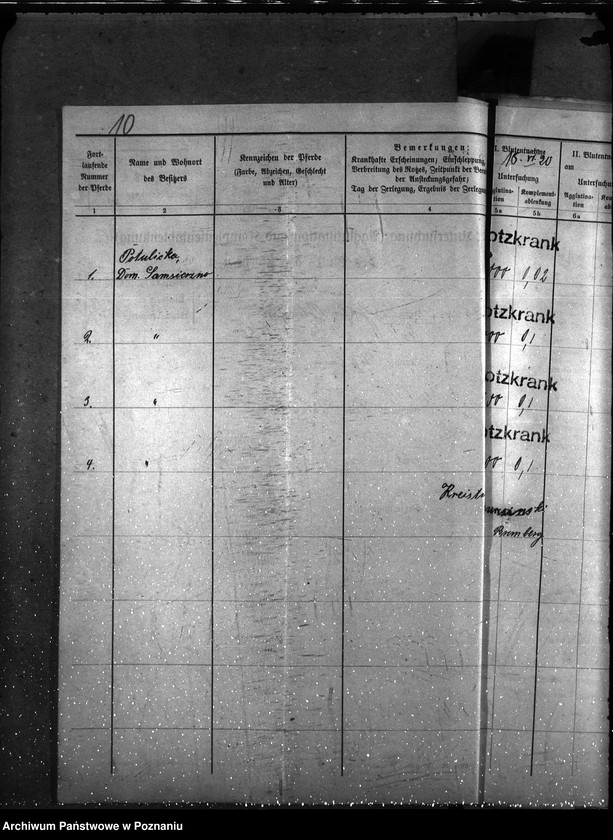 10
Fort-
laufende
Nummer
der Pferde
Name und Wohnort
des Besitzers
Kennzeichen der Pferde
(Farbe, Abzeichen, Geschlecht
und Alter)
Bemerkungen:
Krankhafte Erscheinungen; Einschleppung,
Verbreitung des Rotzes, Zeitpunkt der
der Ansteckungsgefahr;
Tag der Zerlegung, Ergebnis der Zerlegung
I. Blutentnahme
16. VI. 20
Untersuchung
Agglutina-
tion
Komplement-
ablenkung
II. Blutentnahme
am
Untersuchung
Agglutina-
tion
1 2 3 4 5a 5b 6a
otzkrank
Potulicka,
1. Dom. Samsieczno 0,02
otzkrank
2. " 0,1
otzkrank
3. " 0,1
otzkrank
4. " 0,1
Kreist
Bromberg
Archiwum Państwowe w Poznaniu